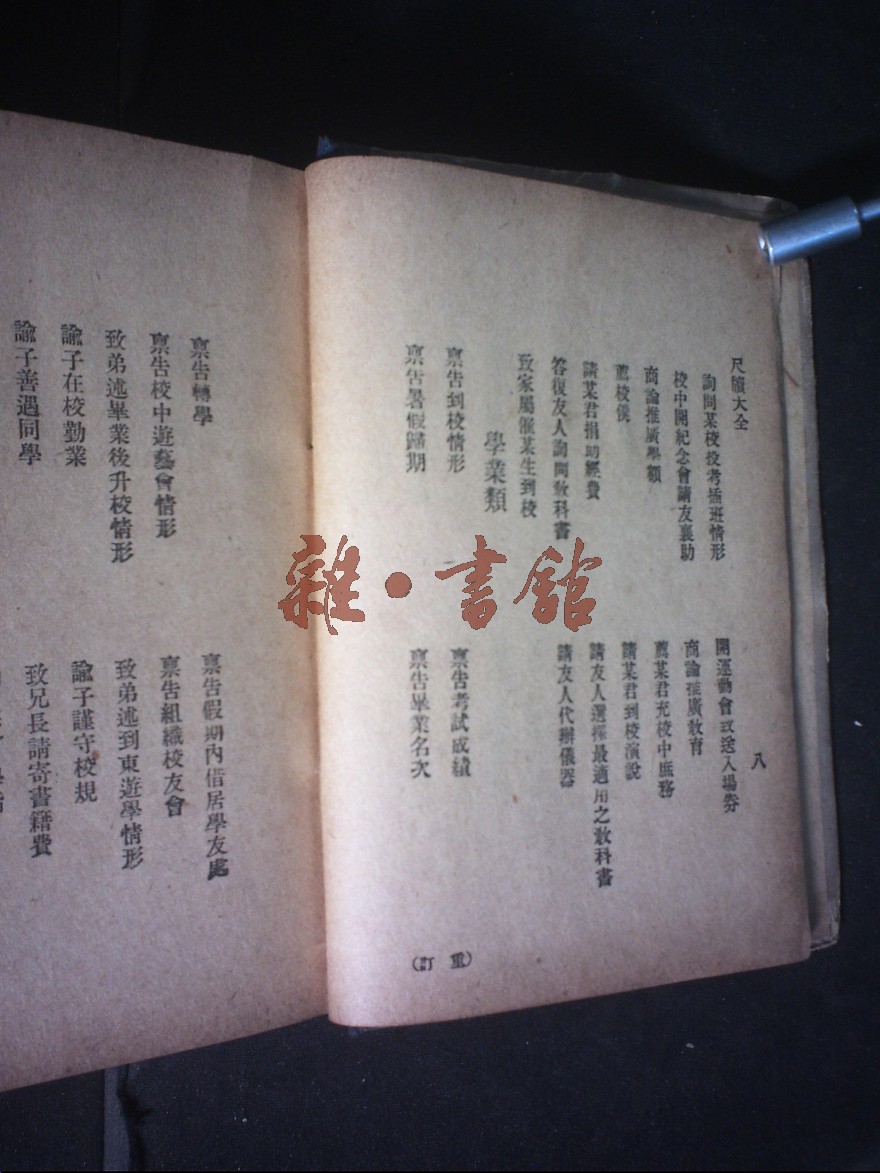 尺牘大全
八
詢問某校投考插班情形
開運動會致送入場劵
校中開紀念會請友襄助
商論推廣敎育
商論推廣學額
薦某君充校中庶務
薦校僕
請某君到校演說
請某君捐助經費
請友人選擇最適用之敎科書
答復友人詢問敎科書
請友人代辦儀器
致家屬催某生到校
學業類
稟告到校情形
稟告考試成績
稟告暑假歸期
稟告畢業名次
(重訂)
稟告轉學
稟告假期內借居學友處
稟告校中遊藝會情形
稟告組織校友會
致弟述畢業後升校情形
致弟述到東遊學情形
諭子在校勤業
諭子謹守校規
諭子善遇同學
致兄長請寄書籍費
雜·書館